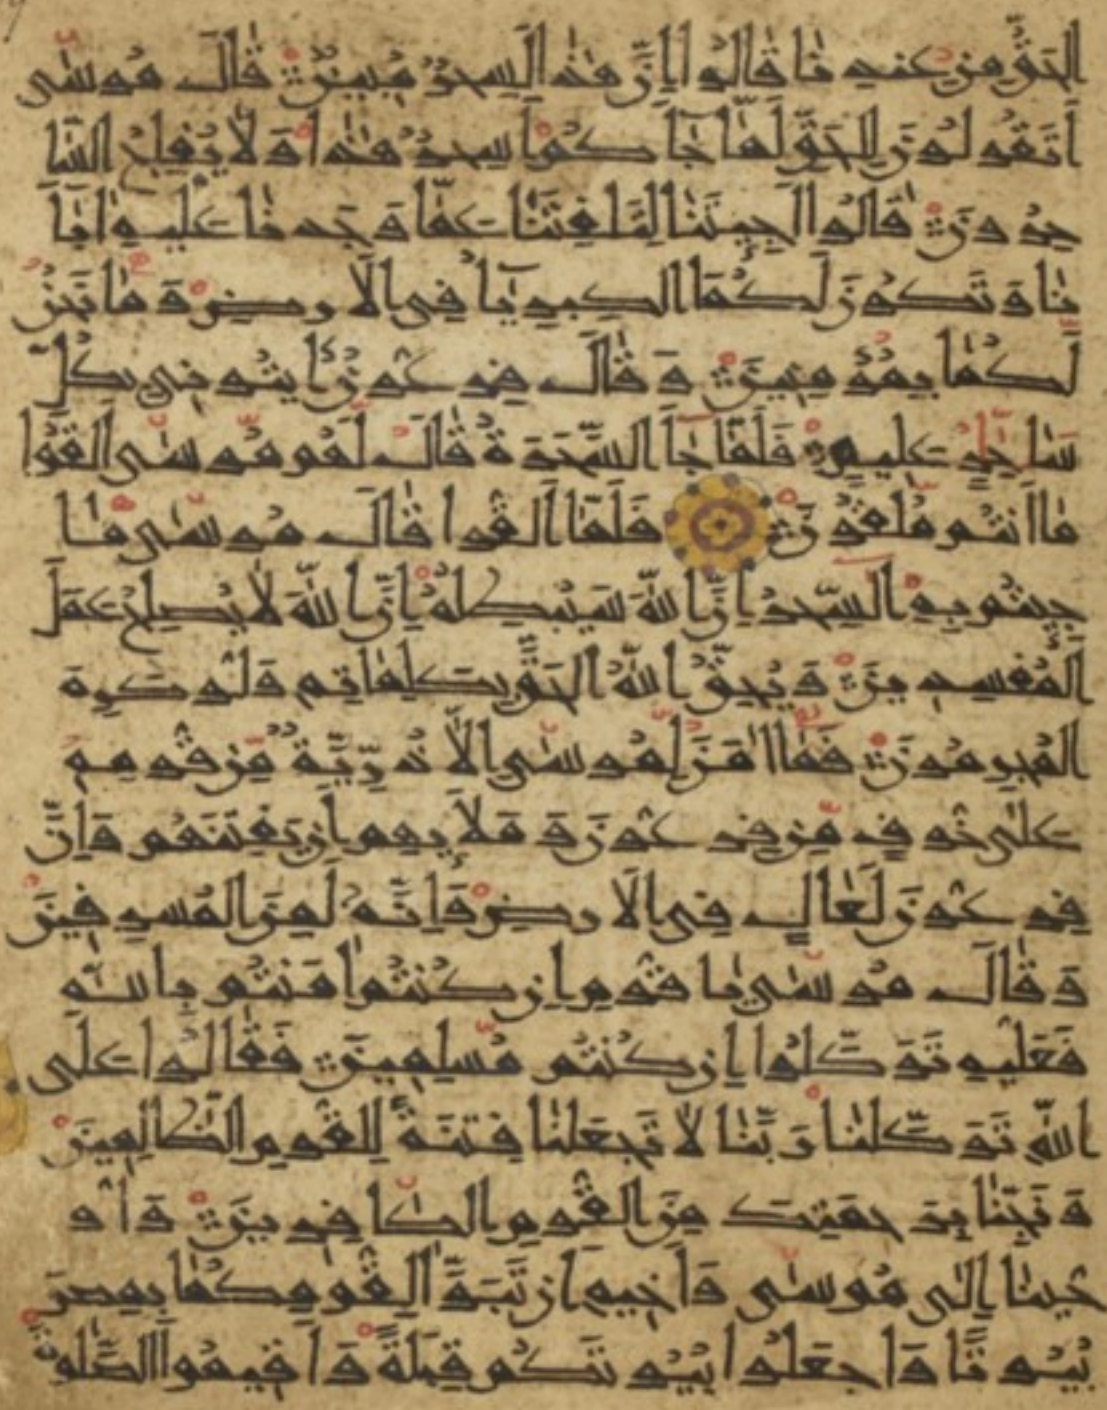 الحق من عندنا قالوا إن هذا لسحر مبين قال موسى
أتقولون للحق لما جاءكم أسحر هذا ولا يفلح السا
حرون قالوا أجئتنا لتلفتنا عما وجدنا عليه آبا
نا وتكون لكما الكبرياء في الأرض وما نحن
لكما بمؤمنين وقال فرعون ائتوني بكل
ساحر عليم فلما جاء السحرة قال لهم موسى ألقوا
ما أنتم ملقون فلما ألقوا قال موسى ما
جئتم به السحر إن الله سيبطله إن الله لا يصلح عمل
المفسدين ويحق الله الحق بكلماته ولو كره
المجرمون فما آمن لموسى إلا ذرية من قومه
على خوف من فرعون وملإيهم أن يفتنهم وإن
فرعون لعال في الأرض وإنه لمن المسرفين
وقال موسى يا قوم إن كنتم آمنتم بالله
فعليه توكلوا إن كنتم مسلمين فقالوا على
الله توكلنا ربنا لا تجعلنا فتنة للقوم الظالمين
ونجنا برحمتك من القوم الكافرين وأو
حينا إلى موسى وأخيه أن تبوآ لقومكما بمصر
بيوتا واجعلوا بيوتكم قبلة وأقيموا الصلوة